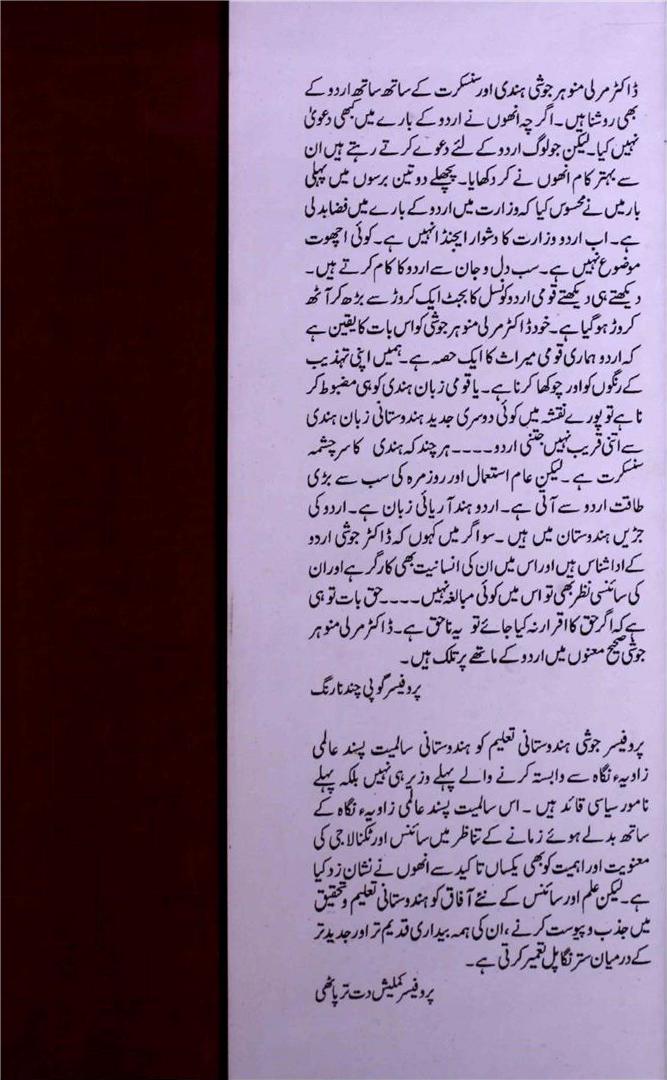 ڈاکٹر مرلی منوہر جوشی ہندی اور سنسکرت کے ساتھ ساتھ اردو کے
بھی روشناہیں۔ اگرچہ انھوں نے اردو کے بارے میں کبھی دعویٰ
نہیں کیا۔ لیکن جو لوگ اردو کے لئے دعوے کرتے رہتے ہیں ان
سے بہتر کام انھوں نے کر دکھایا۔ پچھلے دو تین برسوں میں پہلی
بار میں نے محسوس کیا کہ وزارت میں اردو کے بارے میں فضا بدلی
ہے۔ اب اردو وزارت کا دشوار ایجنڈا نہیں ہے۔ کوئی اچھوت
موضوع نہیں ہے۔ سب دل و جان سے اردو کا کام کرتے ہیں۔
دیکھتے ہی دیکھتے قومی اردو کونسل کا بجٹ ایک کروڑ سے بڑھ کر آٹھ
کروڑ ہو گیا ہے۔ خود ڈاکٹر مرلی منوہر جوشی کو اس بات کا یقین ہے
کہ اردو ہماری قومی میراث کا ایک حصہ ہے۔ ہمیں اپنی تہذیب
کے رنگوں کو اور چوکھا کرنا ہے۔ یا قومی زبان ہندی کو ہی مضبوط کر
نا ہے تو پورے نقشہ میں کوئی دوسری جدید ہندوستانی زبان ہندی
سے اتنی قریب نہیں جتنی اردو۔۔۔۔ ہر چند کہ ہندی کا سرچشمہ
سنسکرت ہے۔ لیکن عام استعمال اور روزمرہ کی سب سے بڑی
طاقت اردو سے آتی ہے۔ اردو ہند آریائی زبان ہے۔ اردو کی
جڑیں ہندوستان میں ہیں۔ سو اگر میں کہوں کہ ڈاکٹر جوشی اردو
کے اداشناس ہیں اور اس میں ان کی انسانیت بھی کارگر ہے اور ان
کی سائنسی نظر بھی تو اس میں کوئی مبالغہ نہیں۔۔۔۔ حق بات تو ہی
ہے کہ اگر حق کا اقرار نہ کیا جائے تو یہ ناحق ہے۔ ڈاکٹر مرلی منوہر
جوشی صحیح معنوں میں اردو کے ماتھے پر تلک ہیں۔
پروفیسر گوپی چند نارنگ
پروفیسر جوشی ہندوستانی تعلیم کو ہندوستانی سالمیت پسند عالمی
زاویہء نگاہ سے وابستہ کرنے والے پہلے وزیر ہی نہیں بلکہ پہلے
نامور سیاسی قائد ہیں۔ اس سالمیت پسند عالمی زاویہء نگاہ کے
ساتھ بدلے ہوئے زمانے کے تناظر میں سائنس اور ٹکنالاجی کی
معنویت اور اہمیت کو بھی یکساں تاکید سے انھوں نے نشان زد کیا
ہے۔ لیکن علم اور سائنس کے نئے آفاق کو ہندوستانی تعلیم و تحقیق
میں جذب و پیوست کرنے، ان کی ہمہ بیداری قدیم تر اور جدید تر
کے درمیان سترنگا پل تعمیر کرتی ہے۔
پروفیسر کملیش دت ترپاٹھی